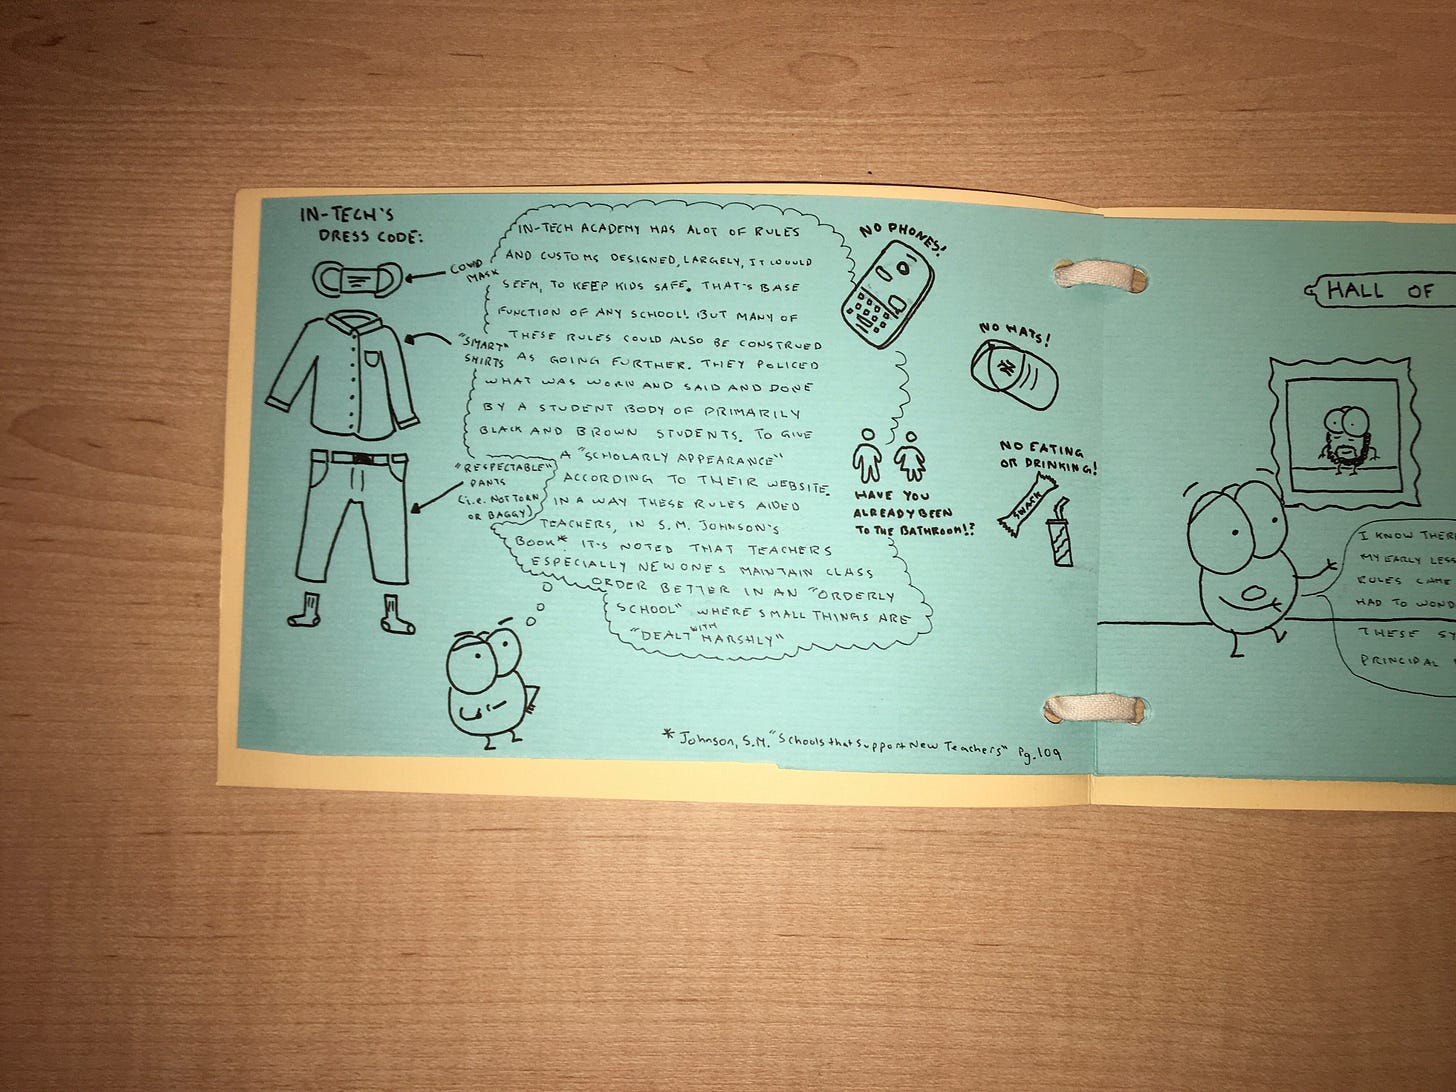 IN-TECH'S
DRESS CODE:
COVID
MASK
"SMART"
SHIRTS
"RESPECTABLE"
PANTS
(i.e. NOT TORN
OR BAGGY)
IN-TECH ACADEMY HAS ALOT OF RULES
AND CUSTOMS DESIGNED, LARGELY, IT WOULD
SEEM, TO KEEP KIDS SAFE. THAT'S BASE
FUNCTION OF ANY SCHOOL! BUT MANY OF
THESE RULES COULD ALSO BE CONSTRUED
AS GOING FURTHER. THEY POLICED
WHAT WAS WORN AND SAID AND DONE
BY A STUDENT BODY OF PRIMARILY
BLACK AND BROWN STUDENTS. TO GIVE
A "SCHOLARLY APPEARANCE"
ACCORDING TO THEIR WEBSITE.
IN A WAY THESE RULES AIDED
TEACHERS, IN S.M. JOHNSON'S
BOOK* IT'S NOTED THAT TEACHERS
ESPECIALLY NEW ONES MAINTAIN CLASS
ORDER BETTER IN AN "ORDERLY
SCHOOL" WHERE SMALL THINGS ARE
"DEALT WITH HARSHLY"
NO PHONES!
NO HATS!
NO EATING
OR DRINKING!
SNACK
HAVE YOU
ALREADY BEEN
TO THE BATHROOM!?
* Johnson, S.M. "Schools that Support New Teachers" Pg. 109
HALL OF
I KNOW THER
MY EARLY LESS
RULES CAME
HAD TO WOND
THESE SY
PRINCIPAL